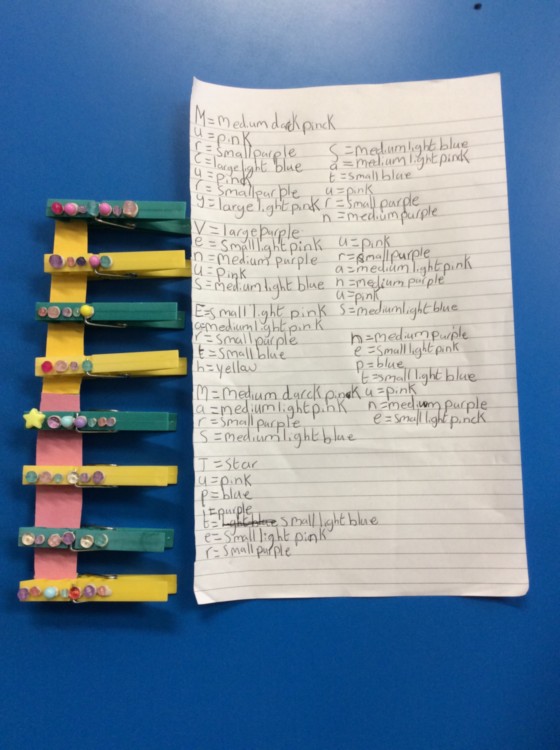 M = medium darck pinck
u = pink
r = small purple
C = large light blue
u = pink
r = small purple
y = large light pink
V = large purple
e = small light pink
n = medium purple
u = pink
S = medium light blue
E = small light pink
a = medium light pink
r = small purple
t = small blue
h = yellow
M = medium darck pinck
a = medium light pink
r = small purple
S = medium light blue
J = Star
u = pink
p = blue
i = purple
t = light blue small light blue
e = small light pink
r = small purple
S = medium light blue
a = medium light pinck
t = small blue
u = pink
r = small purple
n = medium purple
u = pink
r = small purple
a = medium light pink
n = medium purple
u = pink
S = medium light blue
n = medium purple
e = small light pink
p = blue
t = small light blue
u = pink
n = medium purple
e = small light pinck